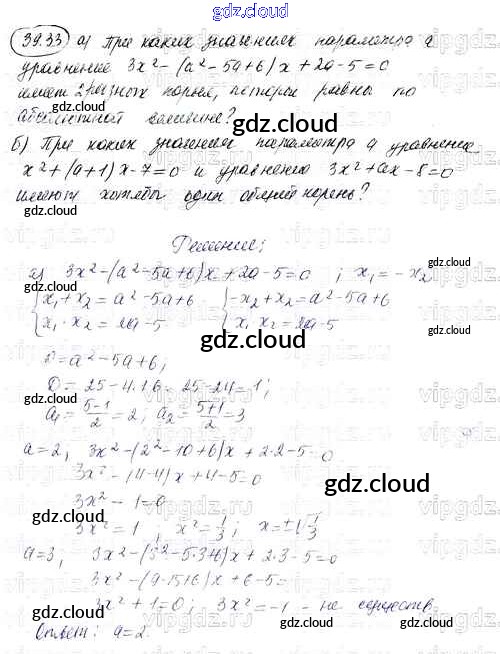 gdz.cloud
39.33 а) При каких значениях параметра а
уравнение 3x² - (a² - 5a + 6)x + 2a - 5 = 0
имеет 2 разных корня, которые равны по
абсолютной величине?
б) При каких значениях параметра а уравнение
x² + (a+1)x - 7 = 0 и уравнение 3x² + ax - 8 = 0
имеют хотя бы один общий корень?
gdz.cloud
Решение:
gdz.cloud
а) 3x² - (a² - 5a + 6)x + 2a - 5 = 0 ; x₁ = -x₂
{x₁ + x₂ = a² - 5a + 6 {-x₂ + x₂ = a² - 5a + 6
{x₁ · x₂ = 2a - 5 {x₁ x₂ = 2a - 5
gdz.cloud
0 = a² - 5a + 6;
D = 25 - 4·1·6 = 25 - 24 = 1;
a₁ = (5-1)/2 = 2; a₂ = (5+1)/2 = 3
a = 2, 3x² - (2² - 10 + 6)x + 2·2 - 5 = 0
3x² - (4-4)x + 4 - 5 = 0
3x² - 1 = 0
3x² = 1 ; x² = 1/3 ; x = ±√1/3
a = 3, 3x² - (3² - 5·3 + 6)x + 2·3 - 5 = 0
3x² - (9 - 15 + 6)x + 6 - 5 =
3x² + 1 = 0; 3x² = -1 - не существ.
Ответ: a = 2.
gdz.cloud
vipgdz.ru